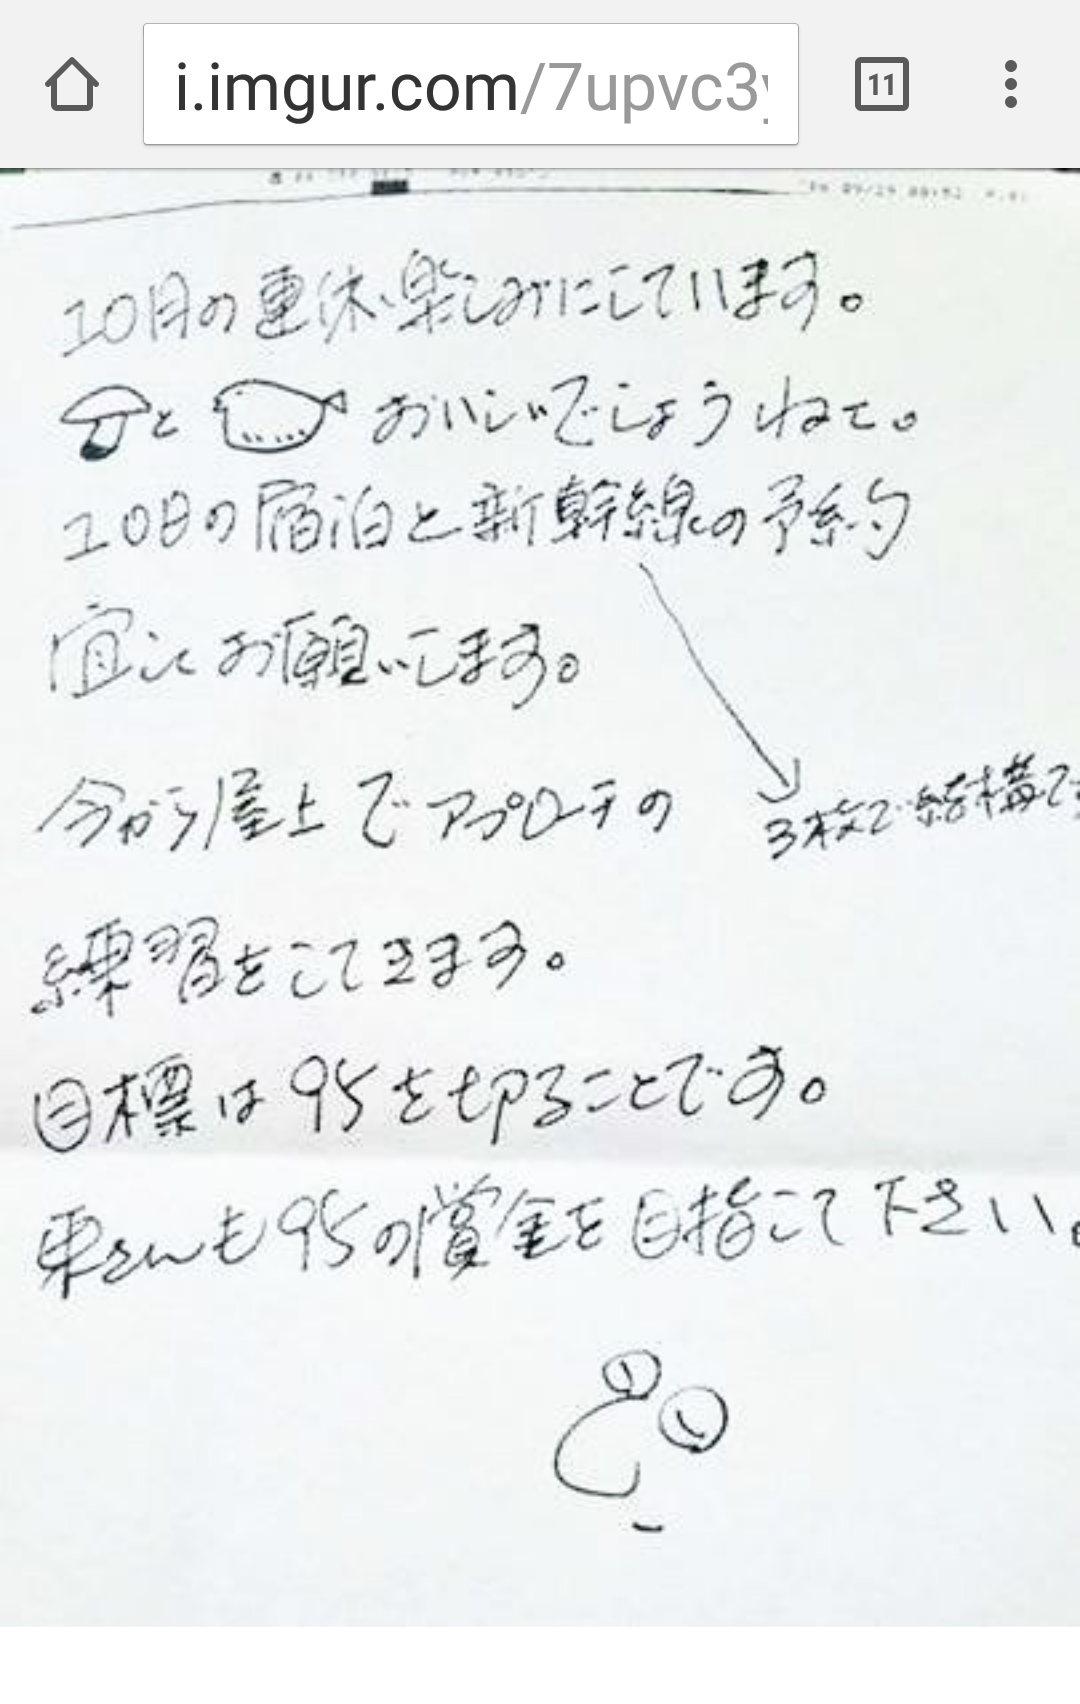 i.imgur.com/7upvc3y
11
10月の連休、楽しみにしています。
と おいしいでしょうねえ。
10日の宿泊と新幹線の予約
宜しくお願いします。
今から屋上でアプローチの
3枚で結構です
練習をしてきます。
目標は95を切ることです。
東さんも95の賞金を目指して下さい。